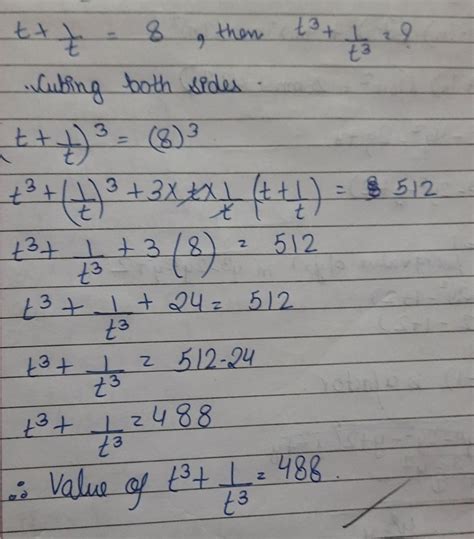 t + 1/t = 8 , then t³ + 1/t³ = ?
Cubing both sides.
t + 1/t)³ = (8)³
t³ + (1/t)³ + 3 x t x 1/t (t + 1/t) = 512
t³ + 1/t³ + 3 (8) = 512
t³ + 1/t³ + 24 = 512
t³ + 1/t³ = 512-24
t³ + 1/t³ = 488
∴ Value of t³ + 1/t³ = 488.